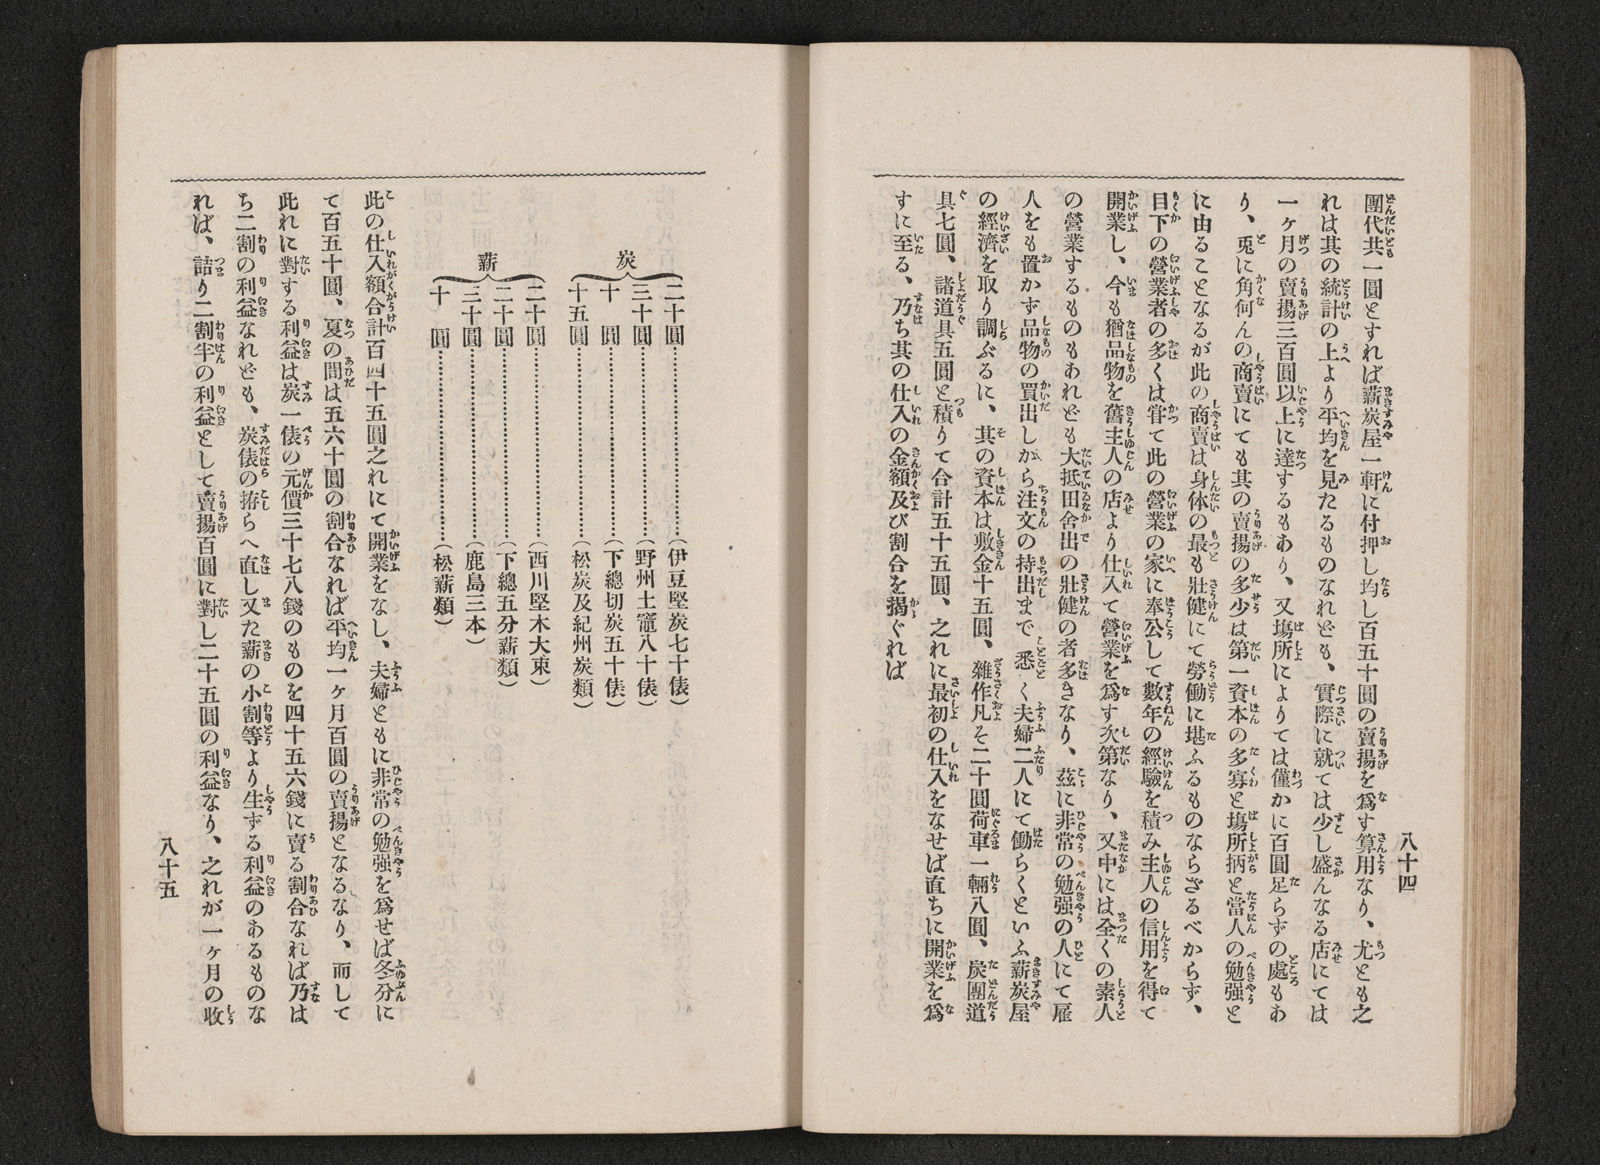 八十四
團代共一圓とすれば薪炭屋一軒に付押し均し百五十圓の賣揚を爲す算用なり、尤とも之
れは其の統計の上より平均を見たるものなれども、實際に就ては少し盛んなる店にては
一ヶ月の賣揚三百圓以上に達するもあり、又塲所によりては僅かに百圓足らずの處もあ
り、兎に角何んの商賣にても其の賣揚の多少は第一資本の多寡と塲所柄と當人の勉强と
に由ることなるが此の商賣は身体の最も壯健にて勞働に堪ふるものならざるべからず、
目下の營業者の多くは甞て此の營業の家に奉公して數年の經驗を積み主人の信用を得て
開業し、今も猶品物を舊主人の店より仕入て營業を爲す次第なり、又中には全くの素人
の營業するものもあれども大抵田舍出の壯健の者多きなり、茲に非常の勉强の人にて雇
人をも置かず品物の買出しから注文の持出まで悉く夫婦二人にて働らくといふ薪炭屋
の經濟を取り調ぶるに、其の資本は敷金十五圓、雜作凡そ二十圓荷車一輛八圓、炭團道
具七圓、諸道具五圓と積りて合計五十五圓、之れに最初の仕入をなせば直ちに開業を爲
すに至る、乃ち其の仕入の金額及び割合を揭ぐれば
炭
二十圓……………………（伊豆堅炭七十俵）
三十圓……………………（野州土竈八十俵）
十　圓……………………（下總切炭五十俵）
十五圓……………………（松炭及紀州炭類）
薪
二十圓……………………（西川堅木大束）
二十圓……………………（下總五分薪類）
三十圓……………………（鹿島三本）
十　圓……………………（松薪類）
此の仕入額合計百四十五圓之れにて開業をなし、夫婦ともに非常の勉强を爲せば冬分に
て百五十圓、夏の間は五六十圓の割合なれば平均一ヶ月百圓の賣揚となるなり、而して
此れに對する利益は炭一俵の元價三十七八錢のものを四十五六錢に賣る割合なれば乃は
ち二割の利益なれども、炭俵の拵らへ直し又た薪の小割等より生ずる利益のあるものな
れば、詰り二割半の利益として賣揚百圓に對し二十五圓の利益なり、之れが一ヶ月の收
八十五